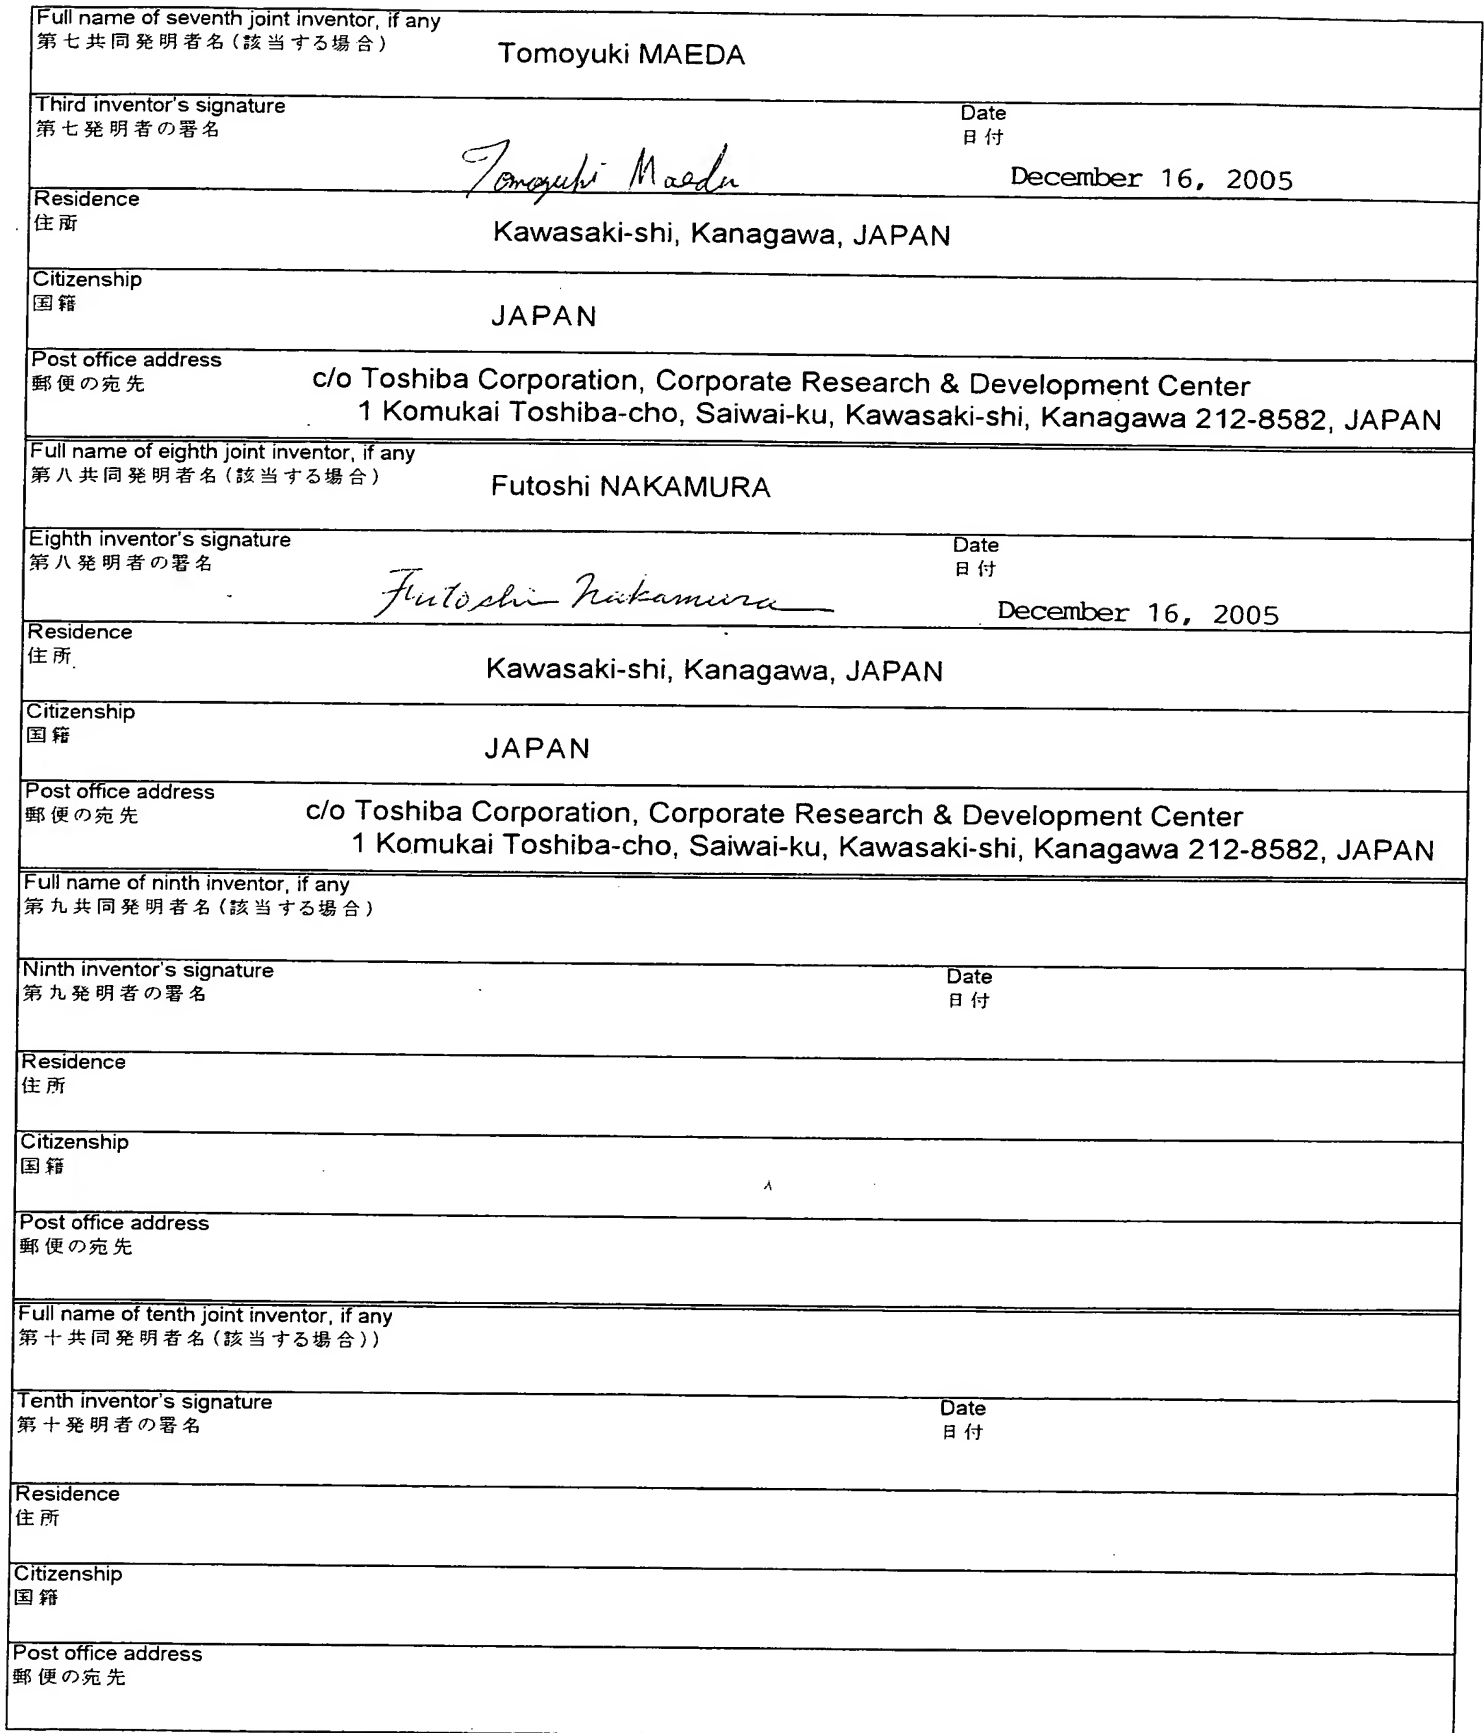 Full name of seventh joint inventor, if any
第七共同発明者名(該当する場合)
Tomoyuki MAEDA
Third inventor's signature
第七発明者の署名
Date
日付
Tomoyuki Maeda
December 16, 2005
Residence
住所
Kawasaki-shi, Kanagawa, JAPAN
Citizenship
国籍
JAPAN
Post office address
郵便の宛先
c/o Toshiba Corporation, Corporate Research & Development Center
1 Komukai Toshiba-cho, Saiwai-ku, Kawasaki-shi, Kanagawa 212-8582, JAPAN
Full name of eighth joint inventor, if any
第八共同発明者名(該当する場合)
Futoshi NAKAMURA
Eighth inventor's signature
第八発明者の署名
Date
日付
Futoshi Nakamura
December 16, 2005
Residence
住所
Kawasaki-shi, Kanagawa, JAPAN
Citizenship
国籍
JAPAN
Post office address
郵便の宛先
c/o Toshiba Corporation, Corporate Research & Development Center
1 Komukai Toshiba-cho, Saiwai-ku, Kawasaki-shi, Kanagawa 212-8582, JAPAN
Full name of ninth inventor, if any
第九共同発明者名(該当する場合)
Ninth inventor's signature
第九発明者の署名
Date
日付
Residence
住所
Citizenship
国籍
Post office address
郵便の宛先
Full name of tenth joint inventor, if any
第十共同発明者名(該当する場合))
Tenth inventor's signature
第十発明者の署名
Date
日付
Residence
住所
Citizenship
国籍
Post office address
郵便の宛先